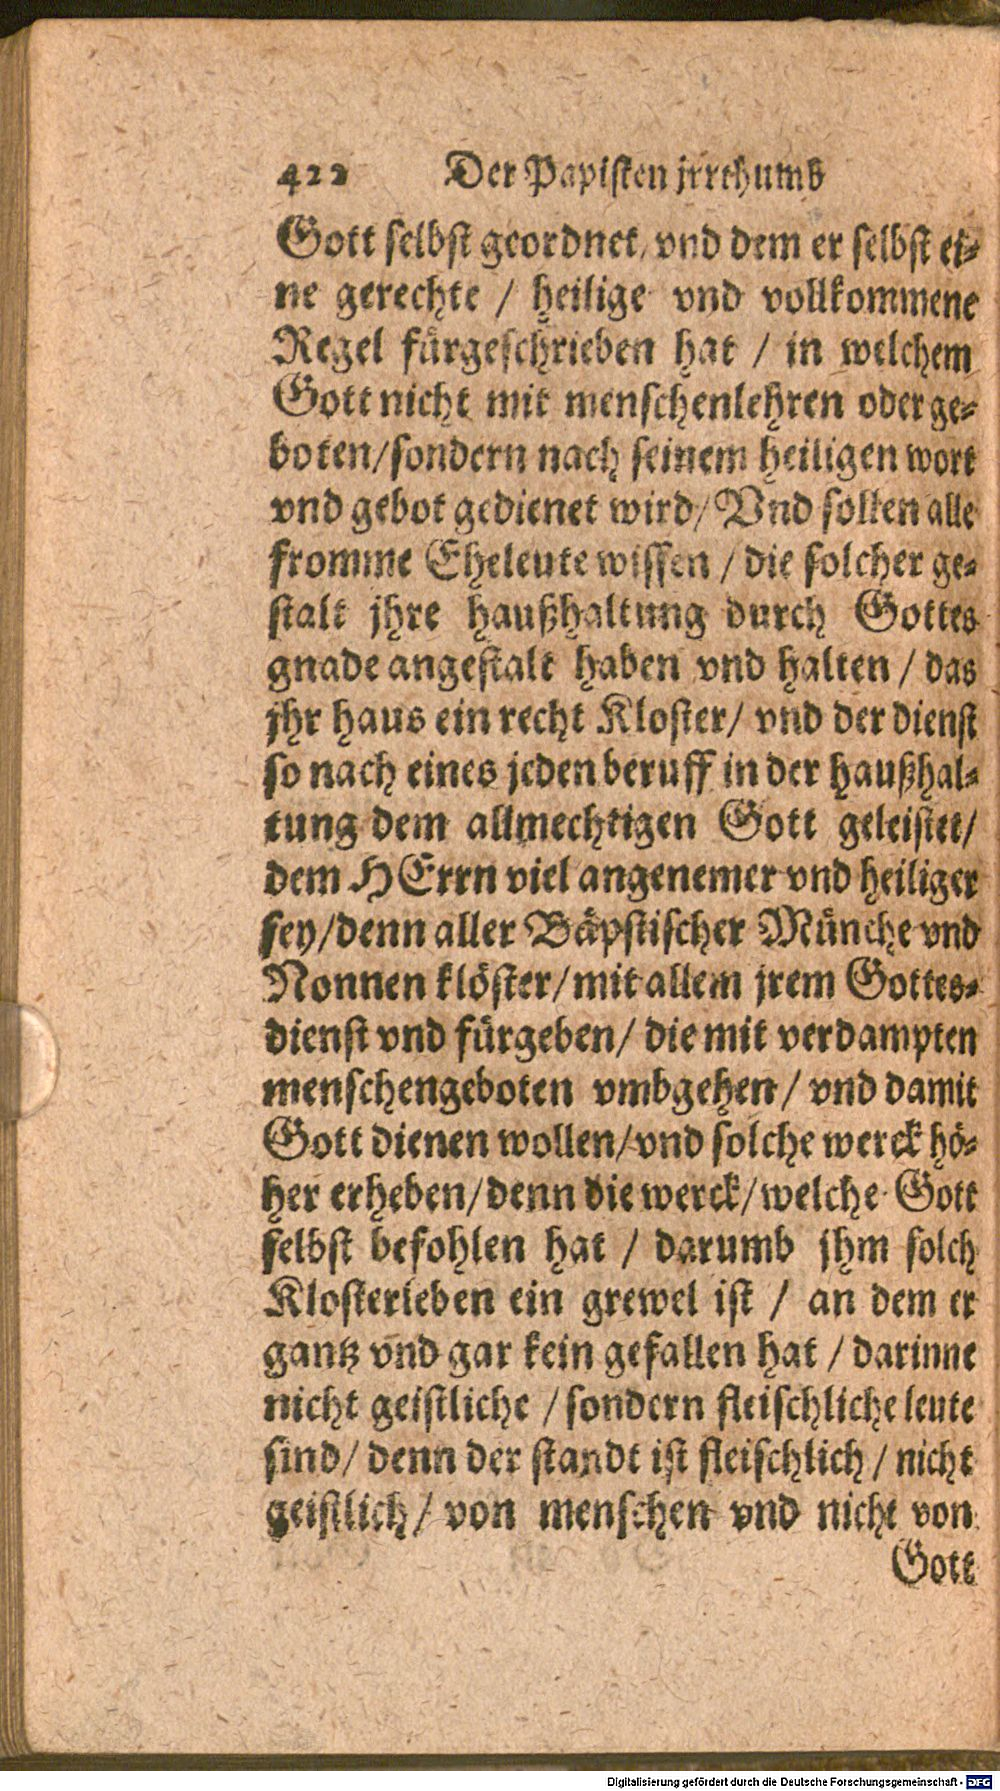 422 Der Papisten jrrthumb
Gott selbst geordnet, vnd dem er selbst ei-
ne gerechte / heilige vnd vollkommene
Regel fürgeschrieben hat / in welchem
Gott nicht mit menschenlehren oder ge-
boten/sondern nach seinem heiligen wort
vnd gebot gedienet wird/ Vnd sollen alle
fromme Eheleute wissen / die solcher ge-
stalt jhre haußhaltung durch Gottes
gnade angestalt haben vnd halten / das
jhr haus ein recht Kloster/ vnd der dienst
so nach eines jeden beruff in der haußhal-
tung dem allmechtigen Gott geleistet/
dem HErrn viel angenemer vnd heiliger
sey/denn aller Bäpstischer Münche vnd
Nonnen klöster/mit allem jrem Gottes-
dienst vnd fürgeben/ die mit verdampten
menschengeboten vmbgehen/ vnd damit
Gott dienen wollen/vnd solche werck hö-
her erheben/denn die werck/welche Gott
selbst befohlen hat / darumb jhm solch
Klosterleben ein grewel ist / an dem er
gantz vnd gar kein gefallen hat / darinne
nicht geistliche / sondern fleischliche leute
sind/ denn der standt ist fleischlich / nicht
geistlich/ von menschen vnd nicht von
Gott
Digitalisierung gefördert durch die Deutsche Forschungsgemeinschaft - DFG